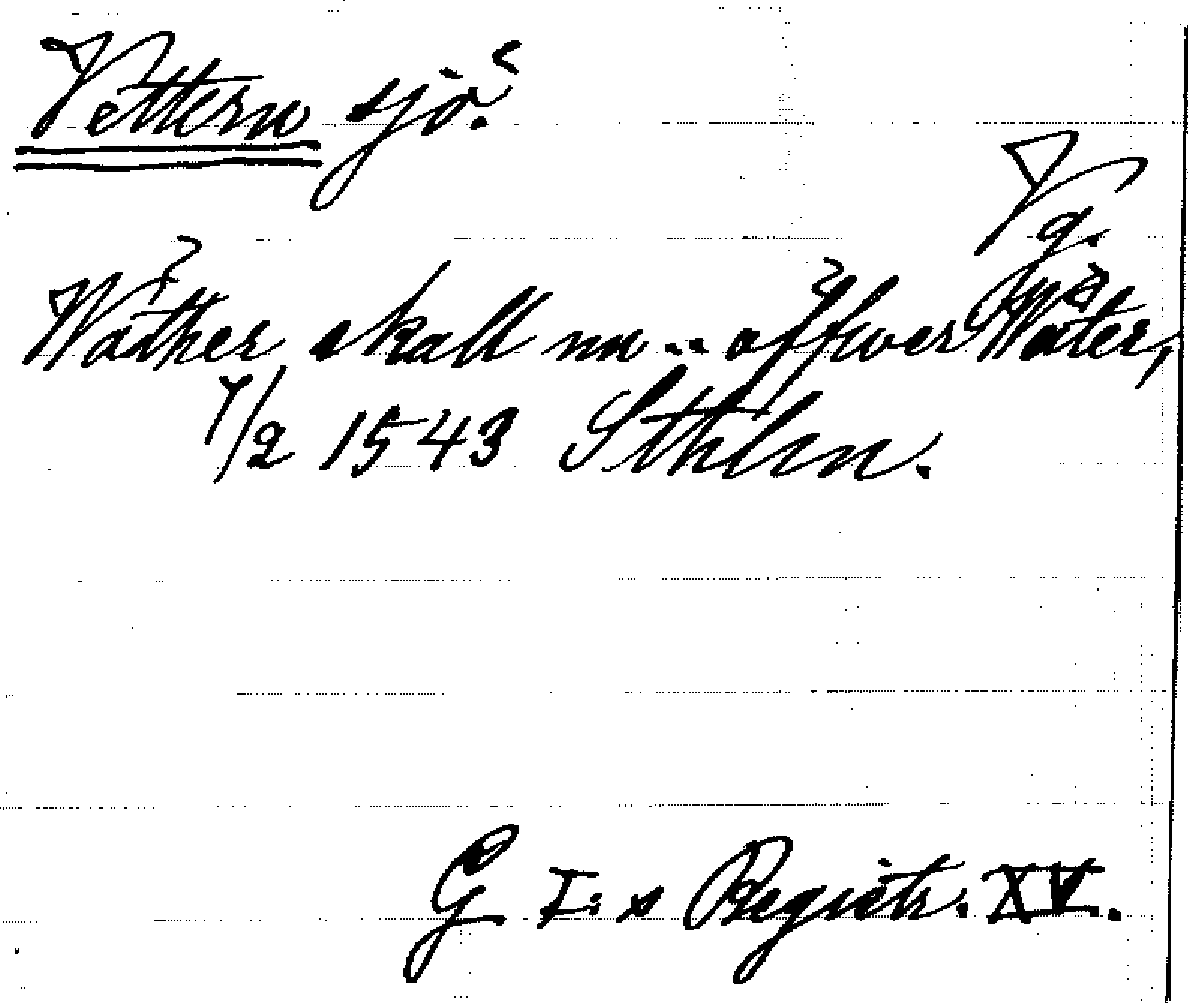 Vettern sjö.
Vg.
Wather skall nu .. offwer Wäter,
7/2 1543 Sthlm.
G I:s Registr. XV.